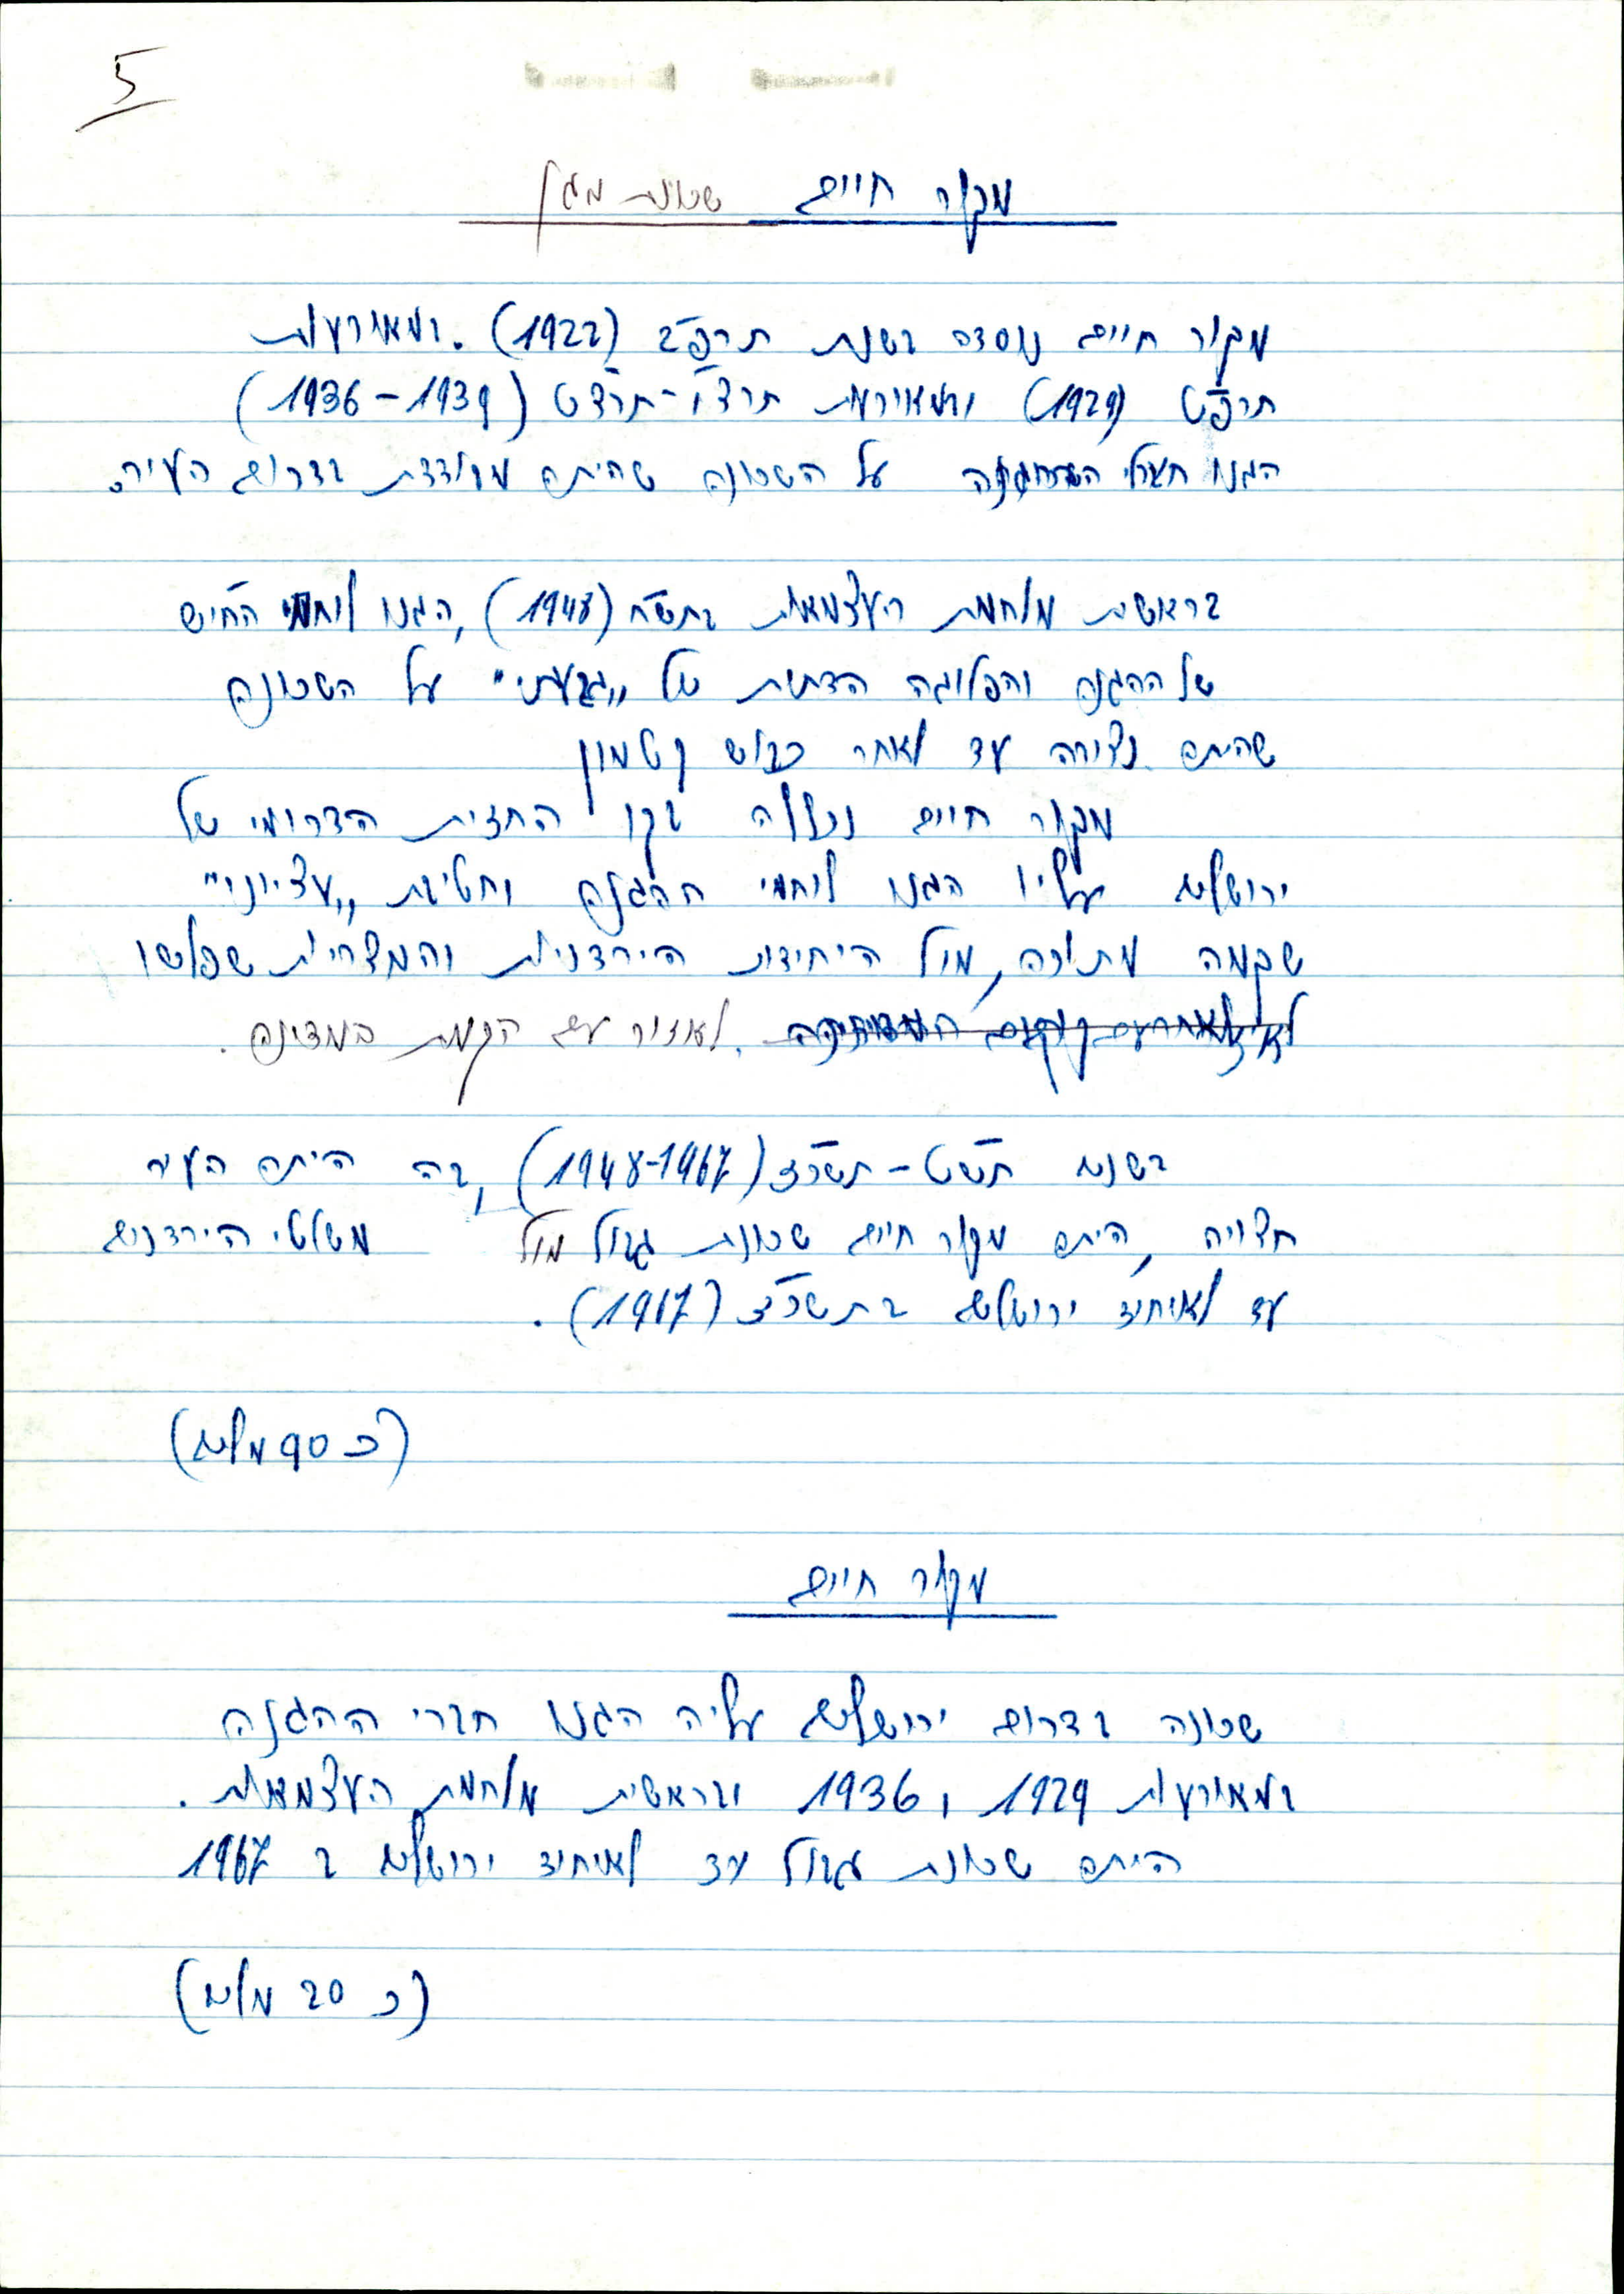 5
מקור חיים שכונת מגן
מקור חיים נוסדה בשנת תרפ"ב (1922). במאורעות
תרפ"ט (1929) ובמאורעות תרצ"ו-תרצ"ט (1936-1939)
הגנו חברי ההגנה על השכונה שהיתה מבודדת בדרום העיר.
בראשית מלחמת העצמאות בתש"ח (1948), הגנו לוחמי החי"ש
של ההגנה והפלוגה הדתית של "גבעתי" על השכונה
שהיתה נצורה עד לאחר כבוש קטמון
מקור חיים נכללה בקו החזית הדרומי של
ירושלים עליו הגנו לוחמי ההגנה וחטיבת "עציוני"
שקמה מתוכה, מול היחידות הירדניות והמצריות שפלשו
לאזור עם הקמת המדינה.
בשנים תש"ט - תשכ"ז (1948-1967), בה היתה העיר
חצויה, היתה מקור חיים שכונת גבול מול משלטי הירדנים
עד לאיחוד ירושלים בתשכ"ז (1967).
(כ 90 מלים)
מקור חיים
שכונה בדרום ירושלים עליה הגנו חברי ההגנה
במאורעות 1929 ו 1936 ובראשית מלחמת העצמאות.
היתה שכונת גבול עד לאיחוד ירושלים ב 1967
(כ 20 מלים)